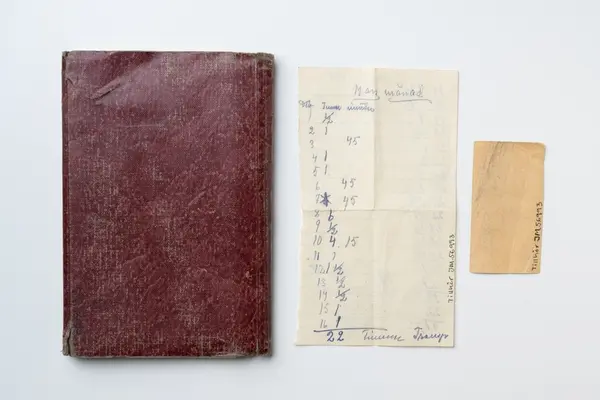 Mars månad
Timmar minuter
1/2
2 1
3 45
4 1
5 1
6 45
7 45
8 6
9 1/2
10 4 15
11 1
12 1 1/2
13 1/2
14 1/2
15 1
16 1
22 Timmar
Tillhör JM.56993
Tillhör JM.56993